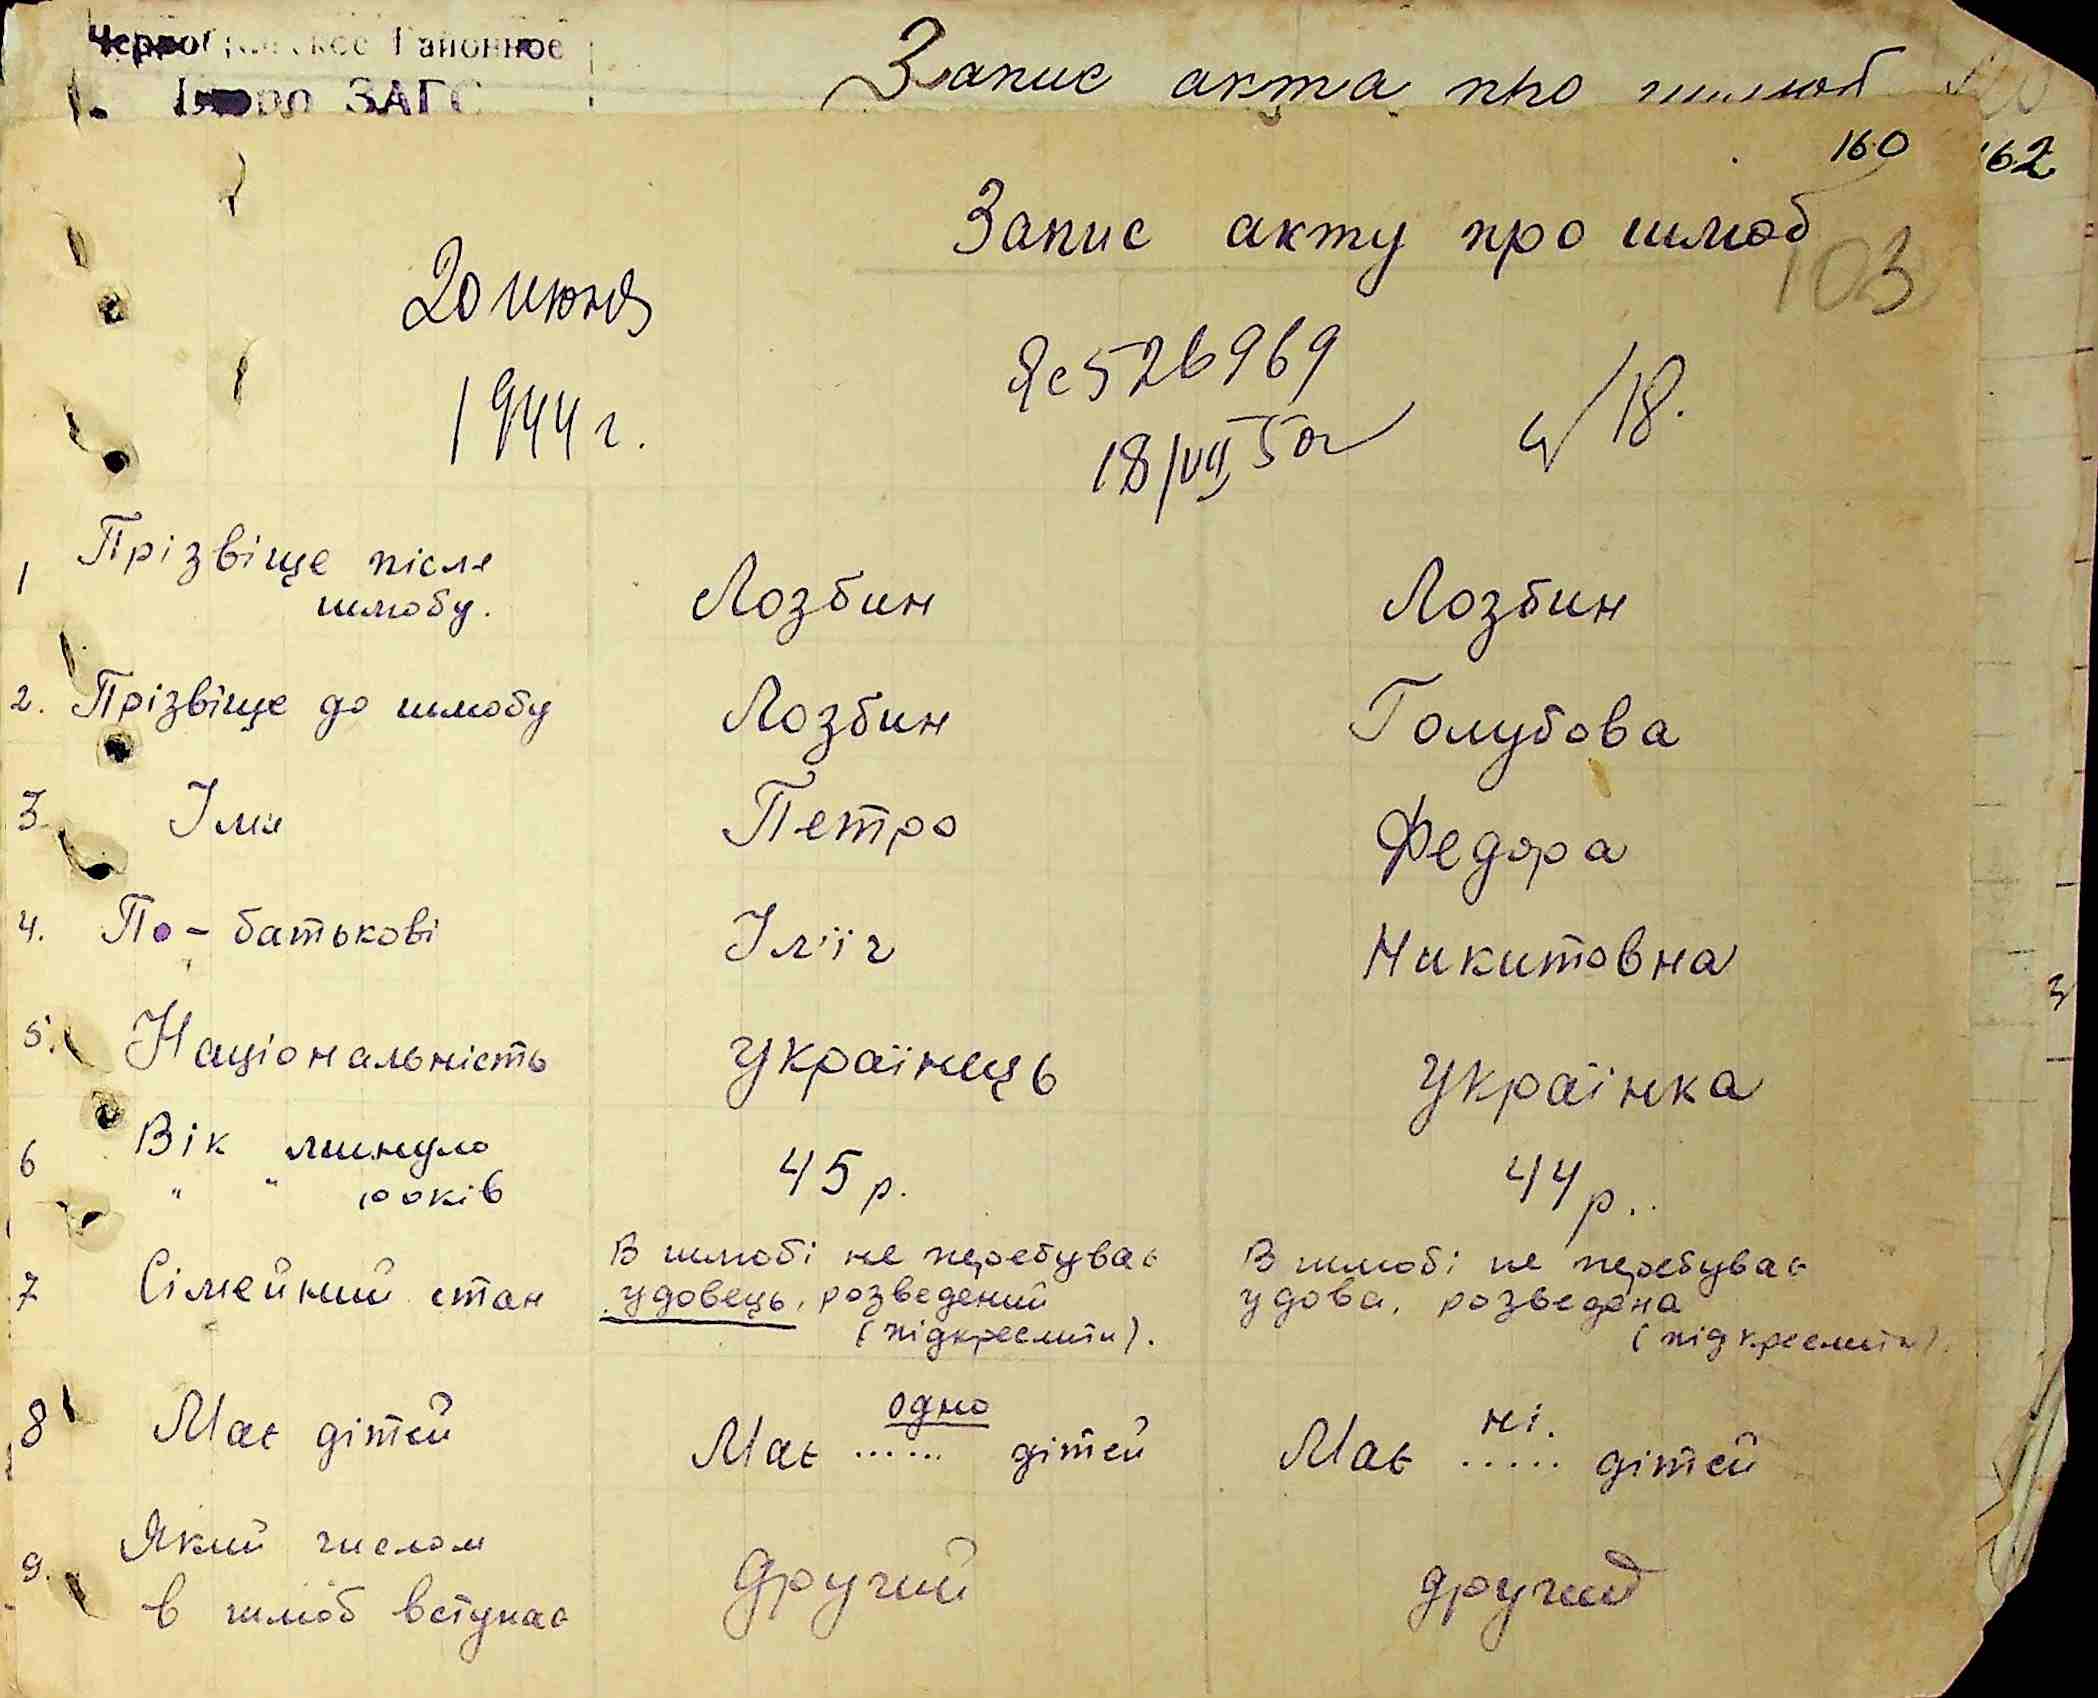 Районное
Бюро ЗАГС
Запис акта про шлюб
160
162
Запис акту про шлюб
103
20 июня
1944 г.
Яс 526969
18/VII 50г
18.
1 Прізвіще після шлюбу. Лозбин Лозбин
2. Прізвіще до шлюбу Лозбин Голубова
3. Імя Петро Федора
4. По-батькові Ілїіч Никитовна
5. Національність Українець Українка
6 Вік минуло 45 р. 44 р..
" " років
7 Сімейний стан В шлюбі не перебував В шлюбі не перебуває
удовець, розведений удова, розведена
(підкреслити). (підкреслити).
8 Має дітей Має одно дітей Має ні. дітей
9. Який числом другий другий
в шлюб вступає